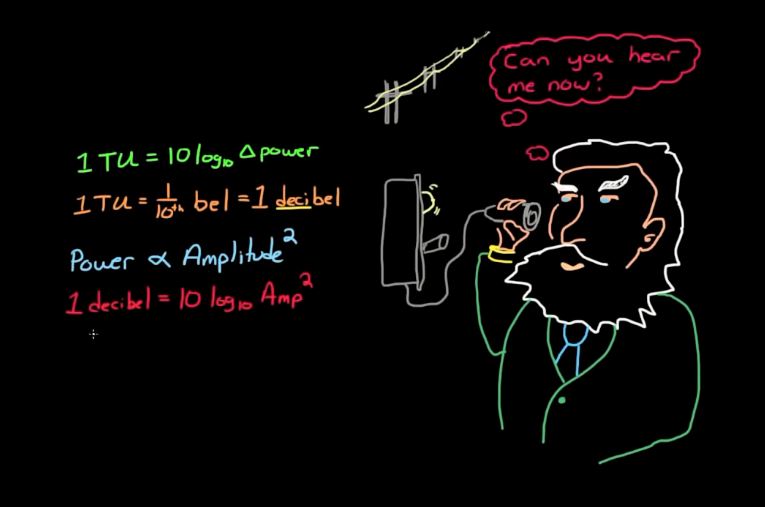 Can you hear
me now?
1 TU = 10 log₁₀ Δ power
1 TU = 1/10ᵗʰ bel = 1 decibel
Power ∝ Amplitude²
1 decibel = 10 log₁₀ Amp²